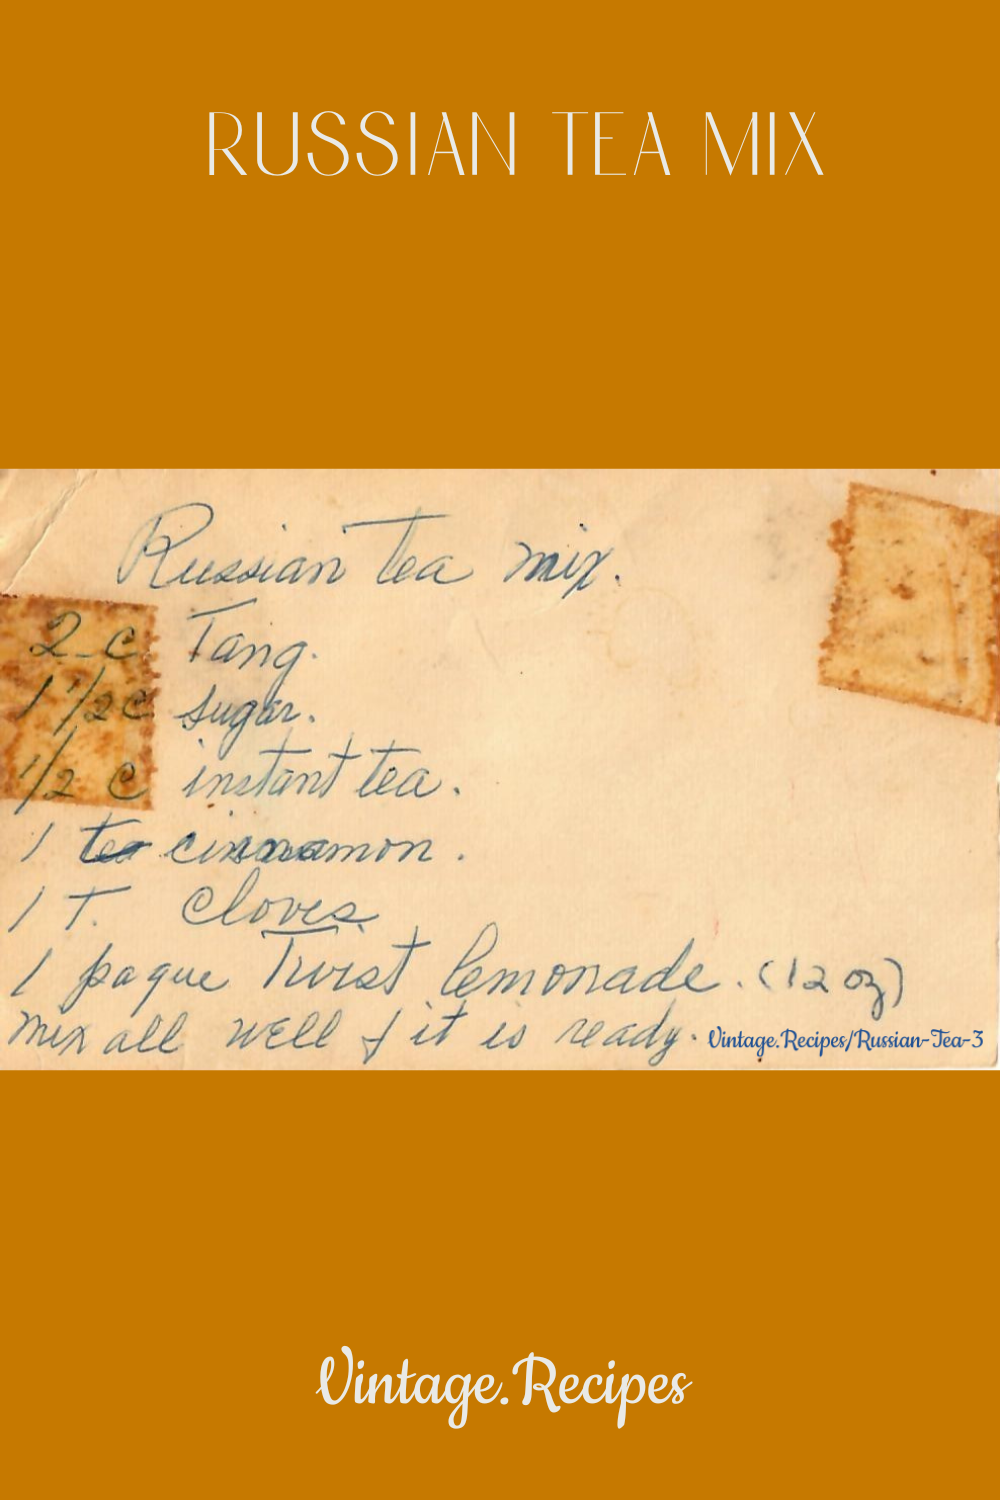 RUSSIAN TEA MIX
Russian tea mix.
2 c Tang.
1 1/2 c sugar.
1/2 c instant tea.
1 tea cinnamon.
1 T. Cloves
1 paque Twist lemonade. (12 oz)
mix all well & it is ready.
Vintage.Recipes/Russian-Tea-3
Vintage.Recipes